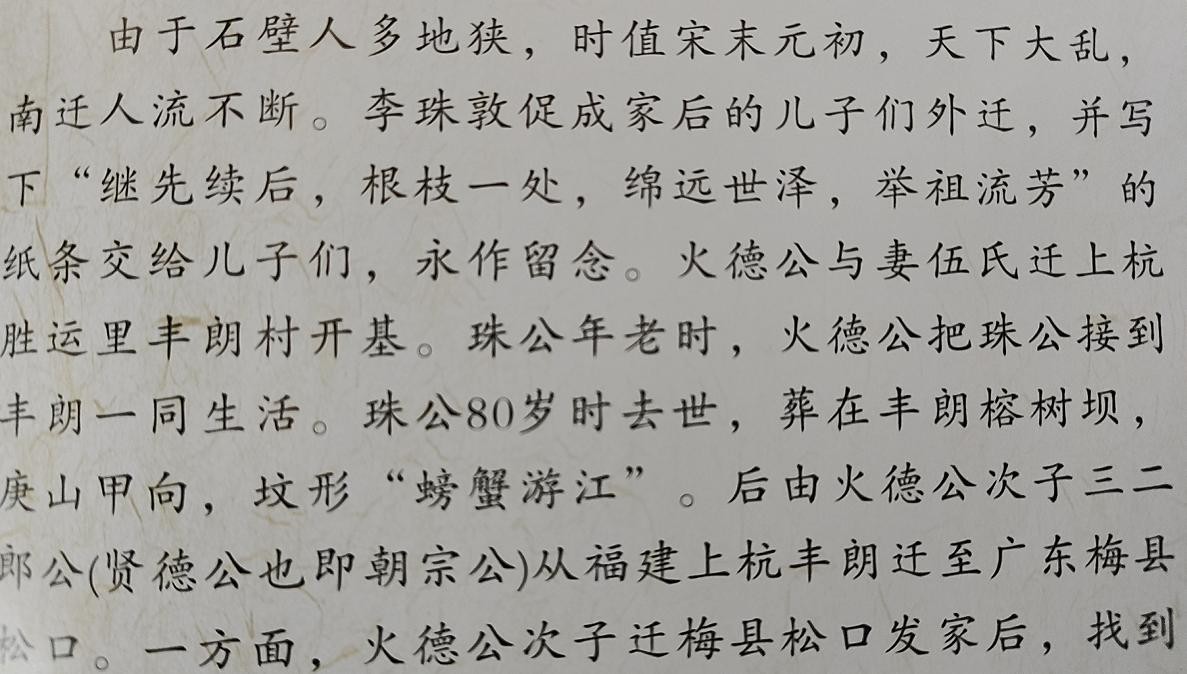 由于石壁人多地狭，时值宋末元初，天下大乱，
南迁人流不断。李珠敦促成家后的儿子们外迁，并写
下“继先续后，根枝一处，绵远世泽，举祖流芳”的
纸条交给儿子们，永作留念。火德公与妻伍氏迁上杭
胜运里丰朗村开基。珠公年老时，火德公把珠公接到
丰朗一同生活。珠公80岁时去世，葬在丰朗榕树坝，
庚山甲向，坟形“螃蟹游江”。后由火德公次子三二
郎公(贤德公也即朝宗公)从福建上杭丰朗迁至广东梅县
松口。一方面，火德公次子迁梅县松口发家后，找到